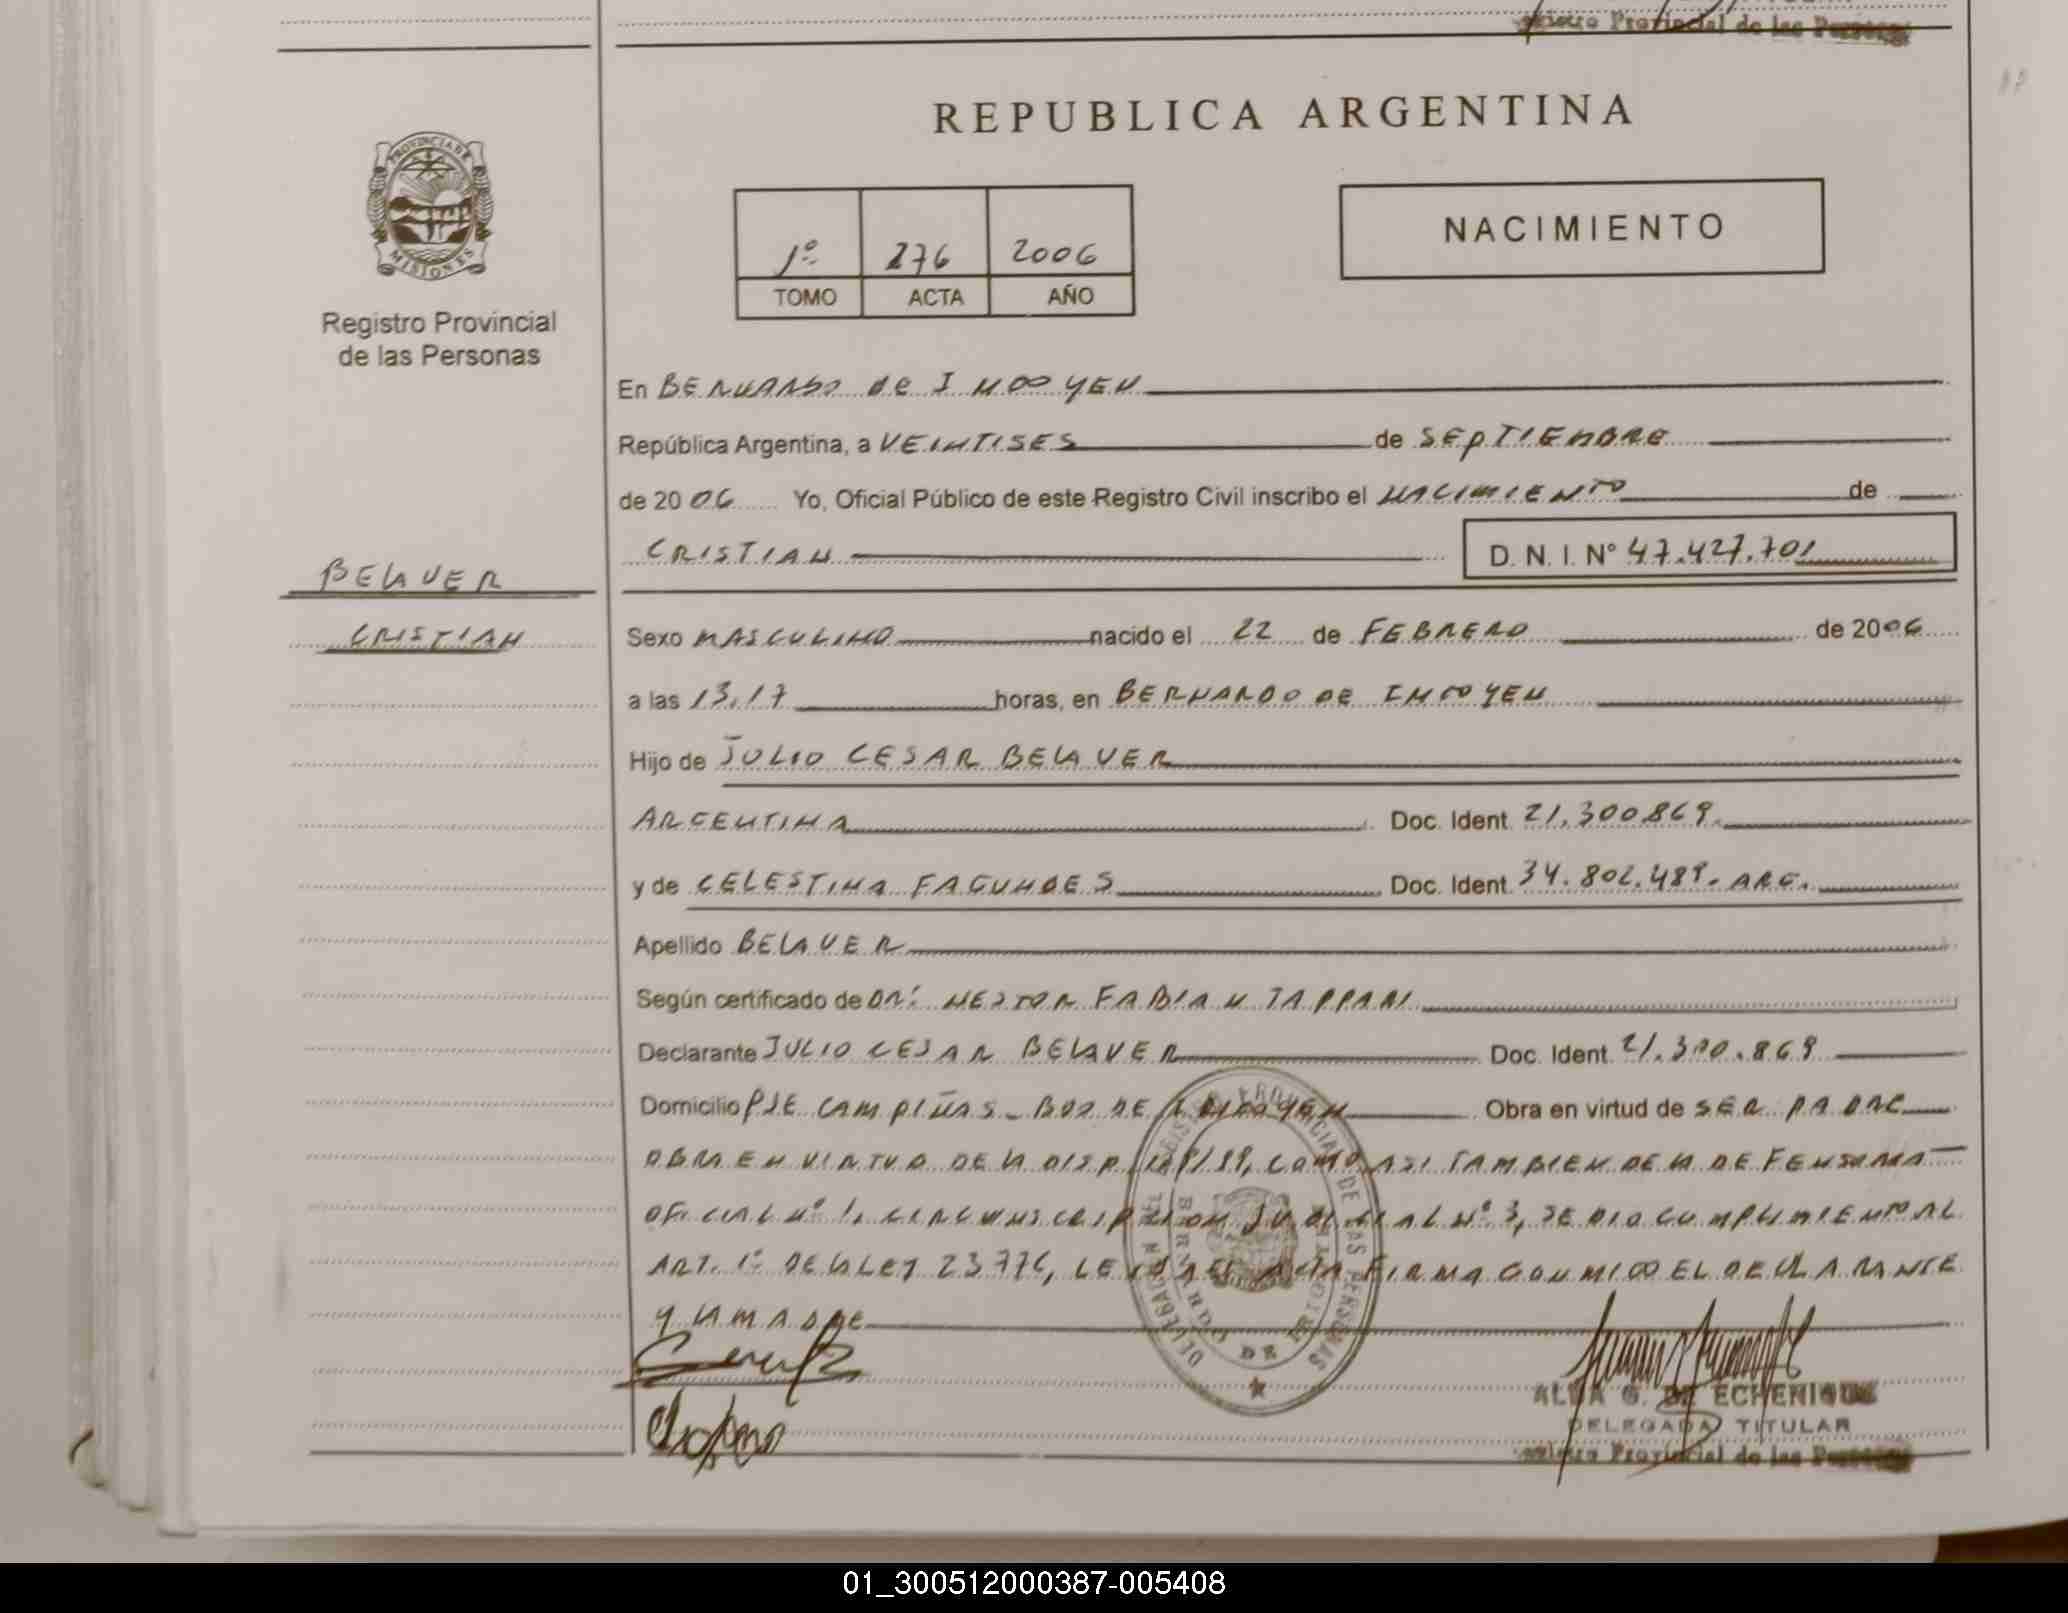 Registro Provincial de las Personas
REPUBLICA ARGENTINA
PROVINCIA DE MISIONES
Registro Provincial
de las Personas
1º 276 2006
TOMO ACTA AÑO
NACIMIENTO
En BERNARDO de IRIGOYEN
República Argentina, a VEINTISES de SEPTIEMBRE
de 2006 Yo, Oficial Público de este Registro Civil inscribo el NACIMIENTO de
CRISTIAN D. N. I. Nº 47.427.701
BELAVER
CRISTIAN
Sexo MASCULINO nacido el 22 de FEBRERO de 2006
a las 13,17 horas, en BERNARDO DE IRIGOYEN
Hijo de JULIO CESAR BELAVER
ARGENTINA Doc. Ident. 21.300.869.
y de CELESTINA FAGUNDES Doc. Ident. 34.802.489. ARG.
Apellido BELAVER
Según certificado de DR: NESTOR FABIAN TAPPARI
Declarante JULIO CESAR BELAVER Doc. Ident. 21.300.869
Domicilio PJE CAMPIÑAS - BDO DE IRIGOYEN Obra en virtud de SER PADRE
OBRA EN VIRTUD DE LA DISP. /89, COMO ASI TAMBIEN DE LA DEFENSORIA
OFICIAL Nº 1, CIRCUNSCRIPCION JUDICIAL Nº 3, SE DIO CUMPLIMIENTO AL
ART. 1º DE LA LEY 23776, LEIDA EL ACTA FIRMA CONMIGO EL DECLARANTE
Y LA MADRE
REGISTRO PROVINCIAL DE LAS PERSONAS
BERNARDO DE IRIGOYEN
ALBA G. DE ECHENIQUE
DELEGADA TITULAR
Registro Provincial de las Personas
01_300512000387-005408